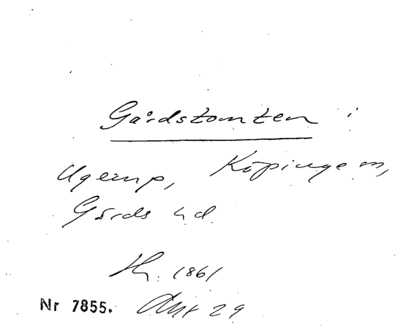 Gårdstomten i
Ugerup, Köpinge sn,
Gärds hd.
Hz. 1861
Nr 7855. Akt 29